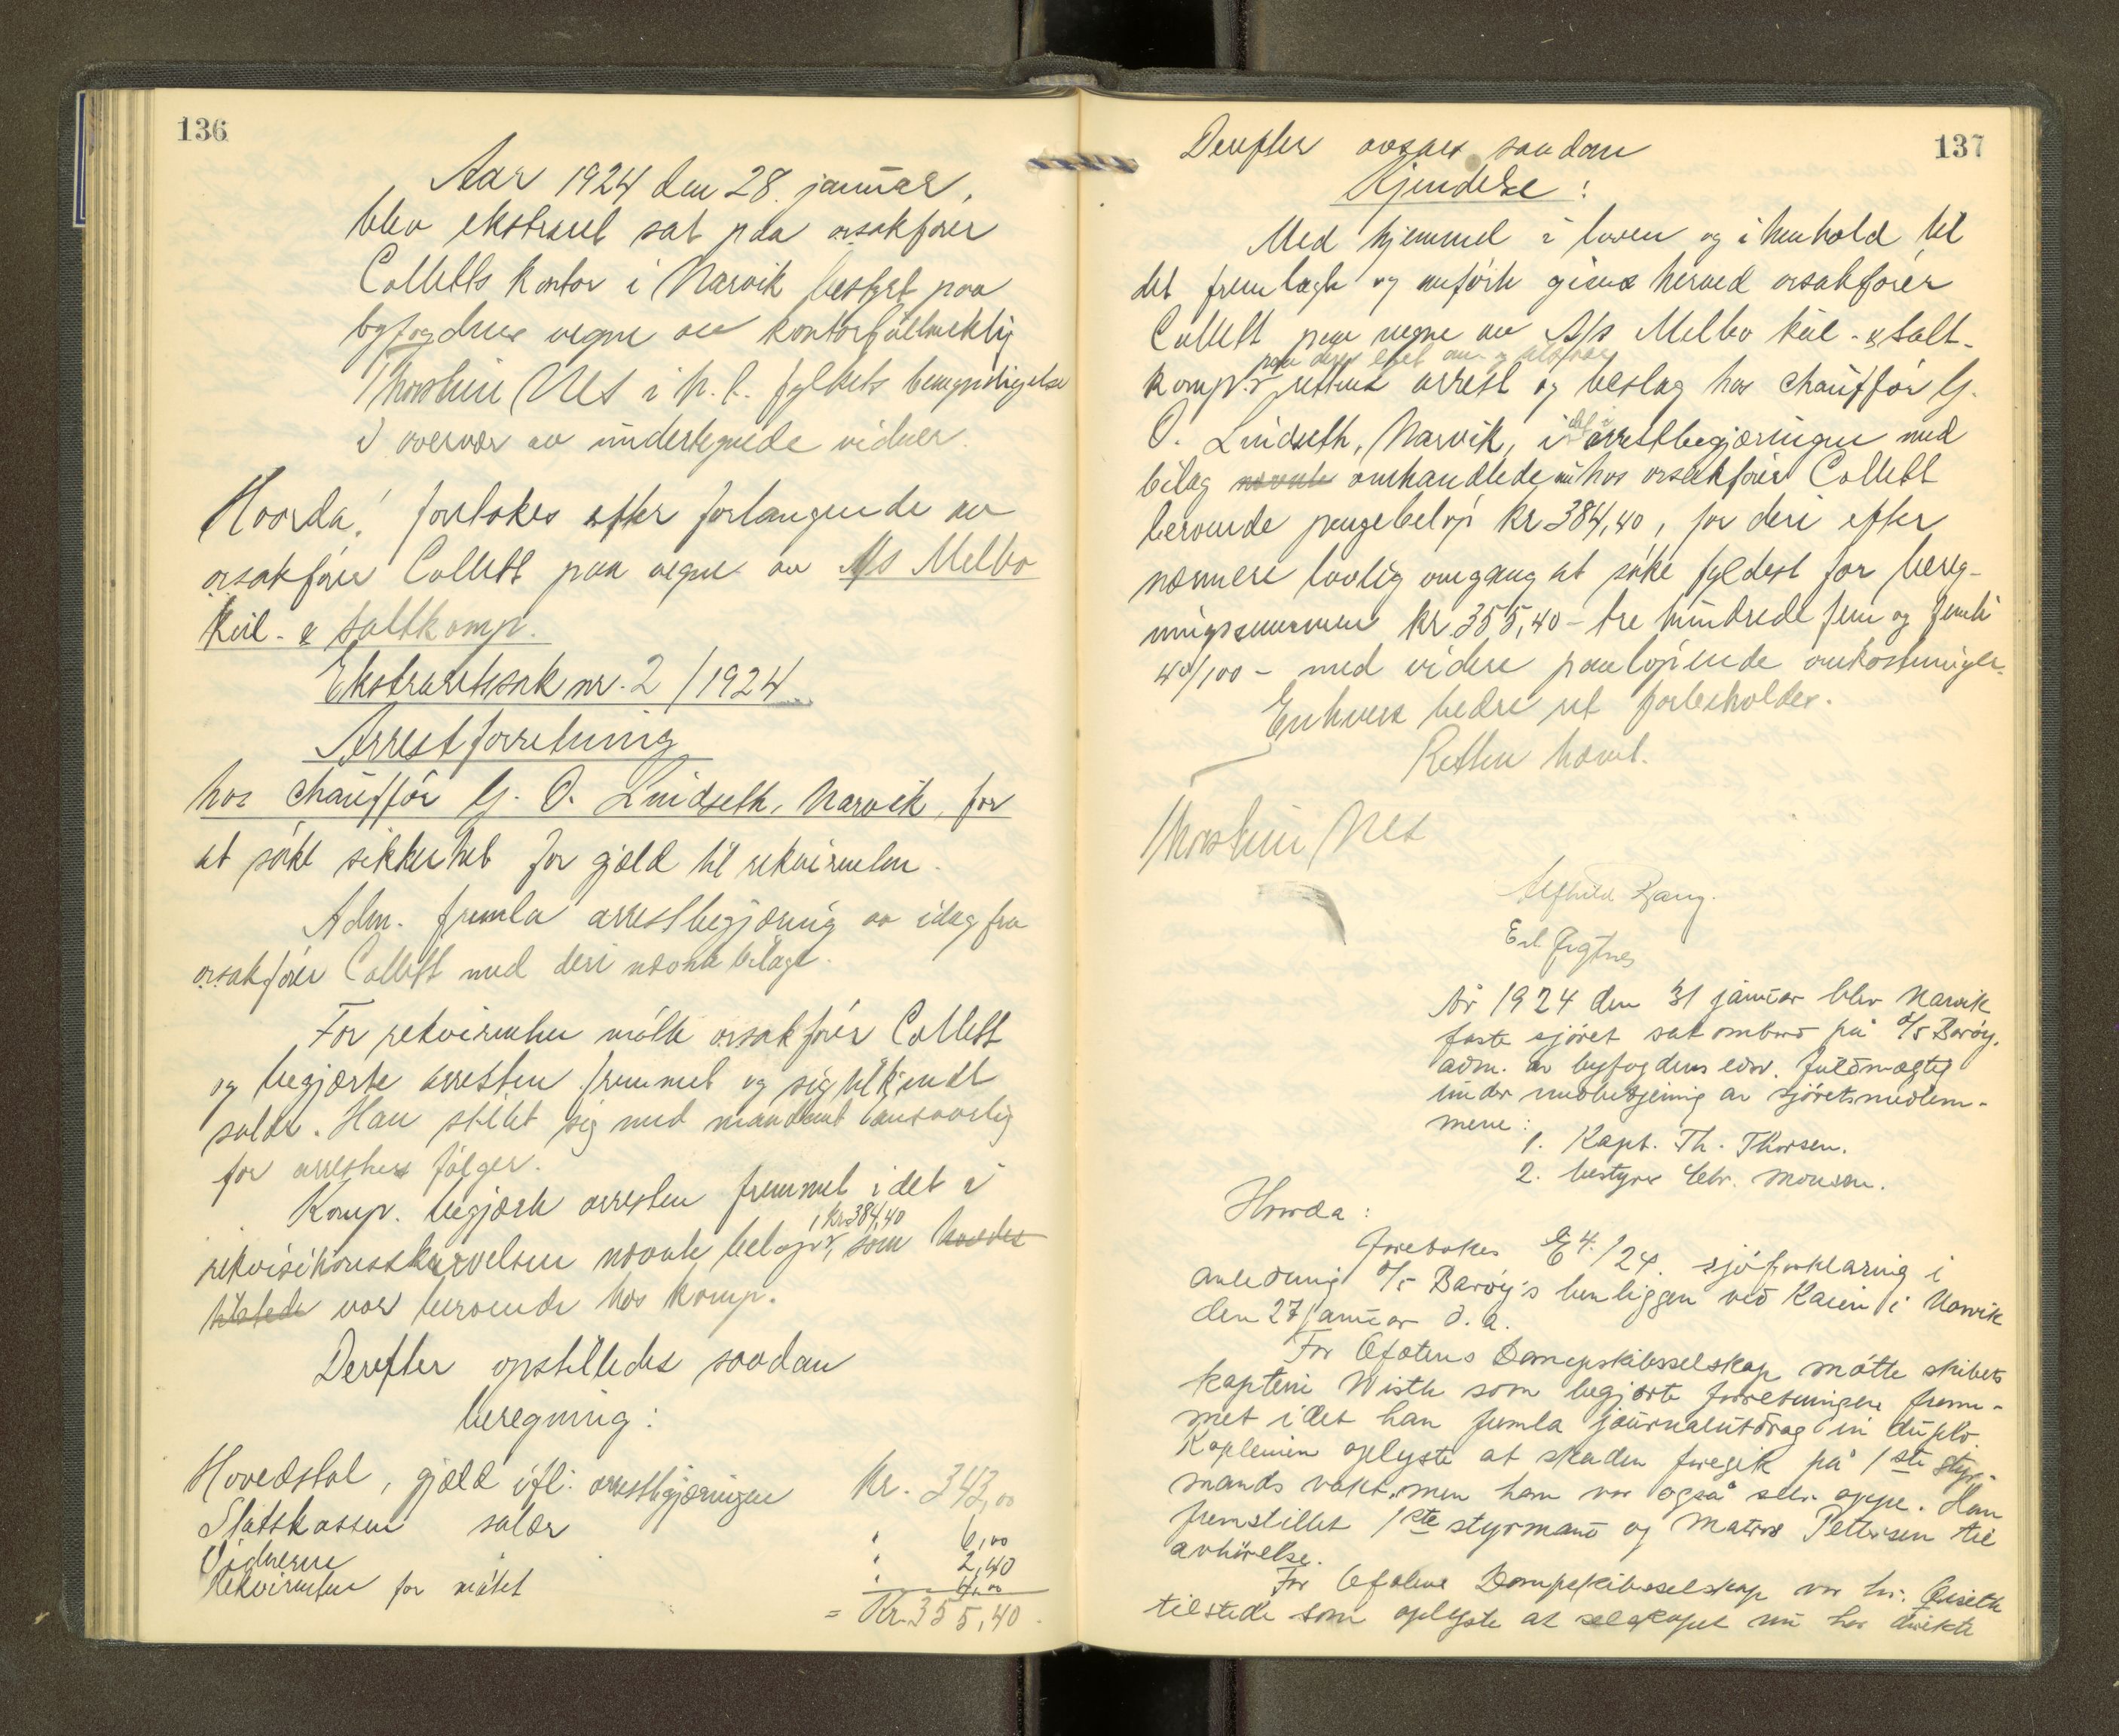 136
Aar 1924 den 28. januar,
blev ekstraret sat paa o.r.sakfører
Colletts kontor i Narvik bestyrt paa
byfogdens vegne av kontorfuldmektig
Thorstein Nes i h. t. fylkets bemyndigelse
i overvær av undertegnede vidner.
Hvorda: foretokes efter forlangende av
o.r.sakfører Collett paa vegne av A/s Melbo
Kul- & Saltkomp.
Ekstraretssak nr. 2 / 1924
Arrestforretning
hos chauffør G. O. Lindseth, Narvik, for
at søke sikkerhet for gjæld til rekvirenten.
Adm. fremla arrestbegjæring av idag fra
o.r.sakfører Collett med deri nævnte bilage.
For rekvirenten møtte o.r.sakfører Collett
og begjærte arresten fremmet og sig tilkjendt
salær. Han stillet sig med mandant ansvarlig
for arrestens følger.
Komp. begjærte arresten fremmet idet i
, kr. 384,40
rekvisitionsskrivelsen nævnte beløp, som havdes
tilstede var beroende hos komp.
Derefter opstilledes saadan
beregning:
Hovedstol, gjæld ifl. arrestbegjæringen Kr. 343,00
Statskassen salær " 6,00
Vidnerne " 2,40
Rekvirenten for møtet " 4,00
= Kr. 355,40
137
Derefter avsaes saadan
Kjendelse:
Med hjemmel i loven og i henhold til
det fremlagte og anførte gives herved o.r.sakfører
Collett paa vegne av A/s Melbo kul- & salt-
komp. rettens arrest og beslag hos chauffør G.
O. Lindseth, Narvik, i det i arrestbegjæringen med
bilag nævnte omhandlede nu hos o.r.sakfører Collett
beroende pengebeløp kr 384,40, for deri efter
nærmere lovlig omgang at søke fyldest for bereg-
ningssummen kr. 355,40 – tre hundrede fem og femti
40/100 – med videre paaløpende omkostninger.
Enhvers bedre ret forbeholdes.
Retten hævet.
Thorstein Nes
Bang.
År 1924 den 31 januar blev Narvik
faste sjøret sat ombord på d/s Barøy,
adm. av byfogdens edsv. fuldmægtig
under medbetjening av sjøretsmedlem-
mene:
1. Kapt. Th. Thorsen.
2. bestyrer Ebr. Monsen.
Hvorda:
foretokes E 4/24. sjøforklaring i
anledning d/s Barøy's henliggen ved Kaien i Narvik
den 27 januar d. a.
For Ofotens Dampskibsselskap møtte skibets
kaptein Wisth som begjærte forretningen frem-
met idet han fremla journalutdrag in duplo.
Kapteinen oplyste at skaden foregik på 1ste styr-
mands vakt, men han var også selv oppe. Han
fremstillet 1ste styrmand og Matros Pettersen til
avhørelse.
For Ofotens Dampskibsselskap var hr. Quseth
tilstede som oplyste at selskapet nu har direkte